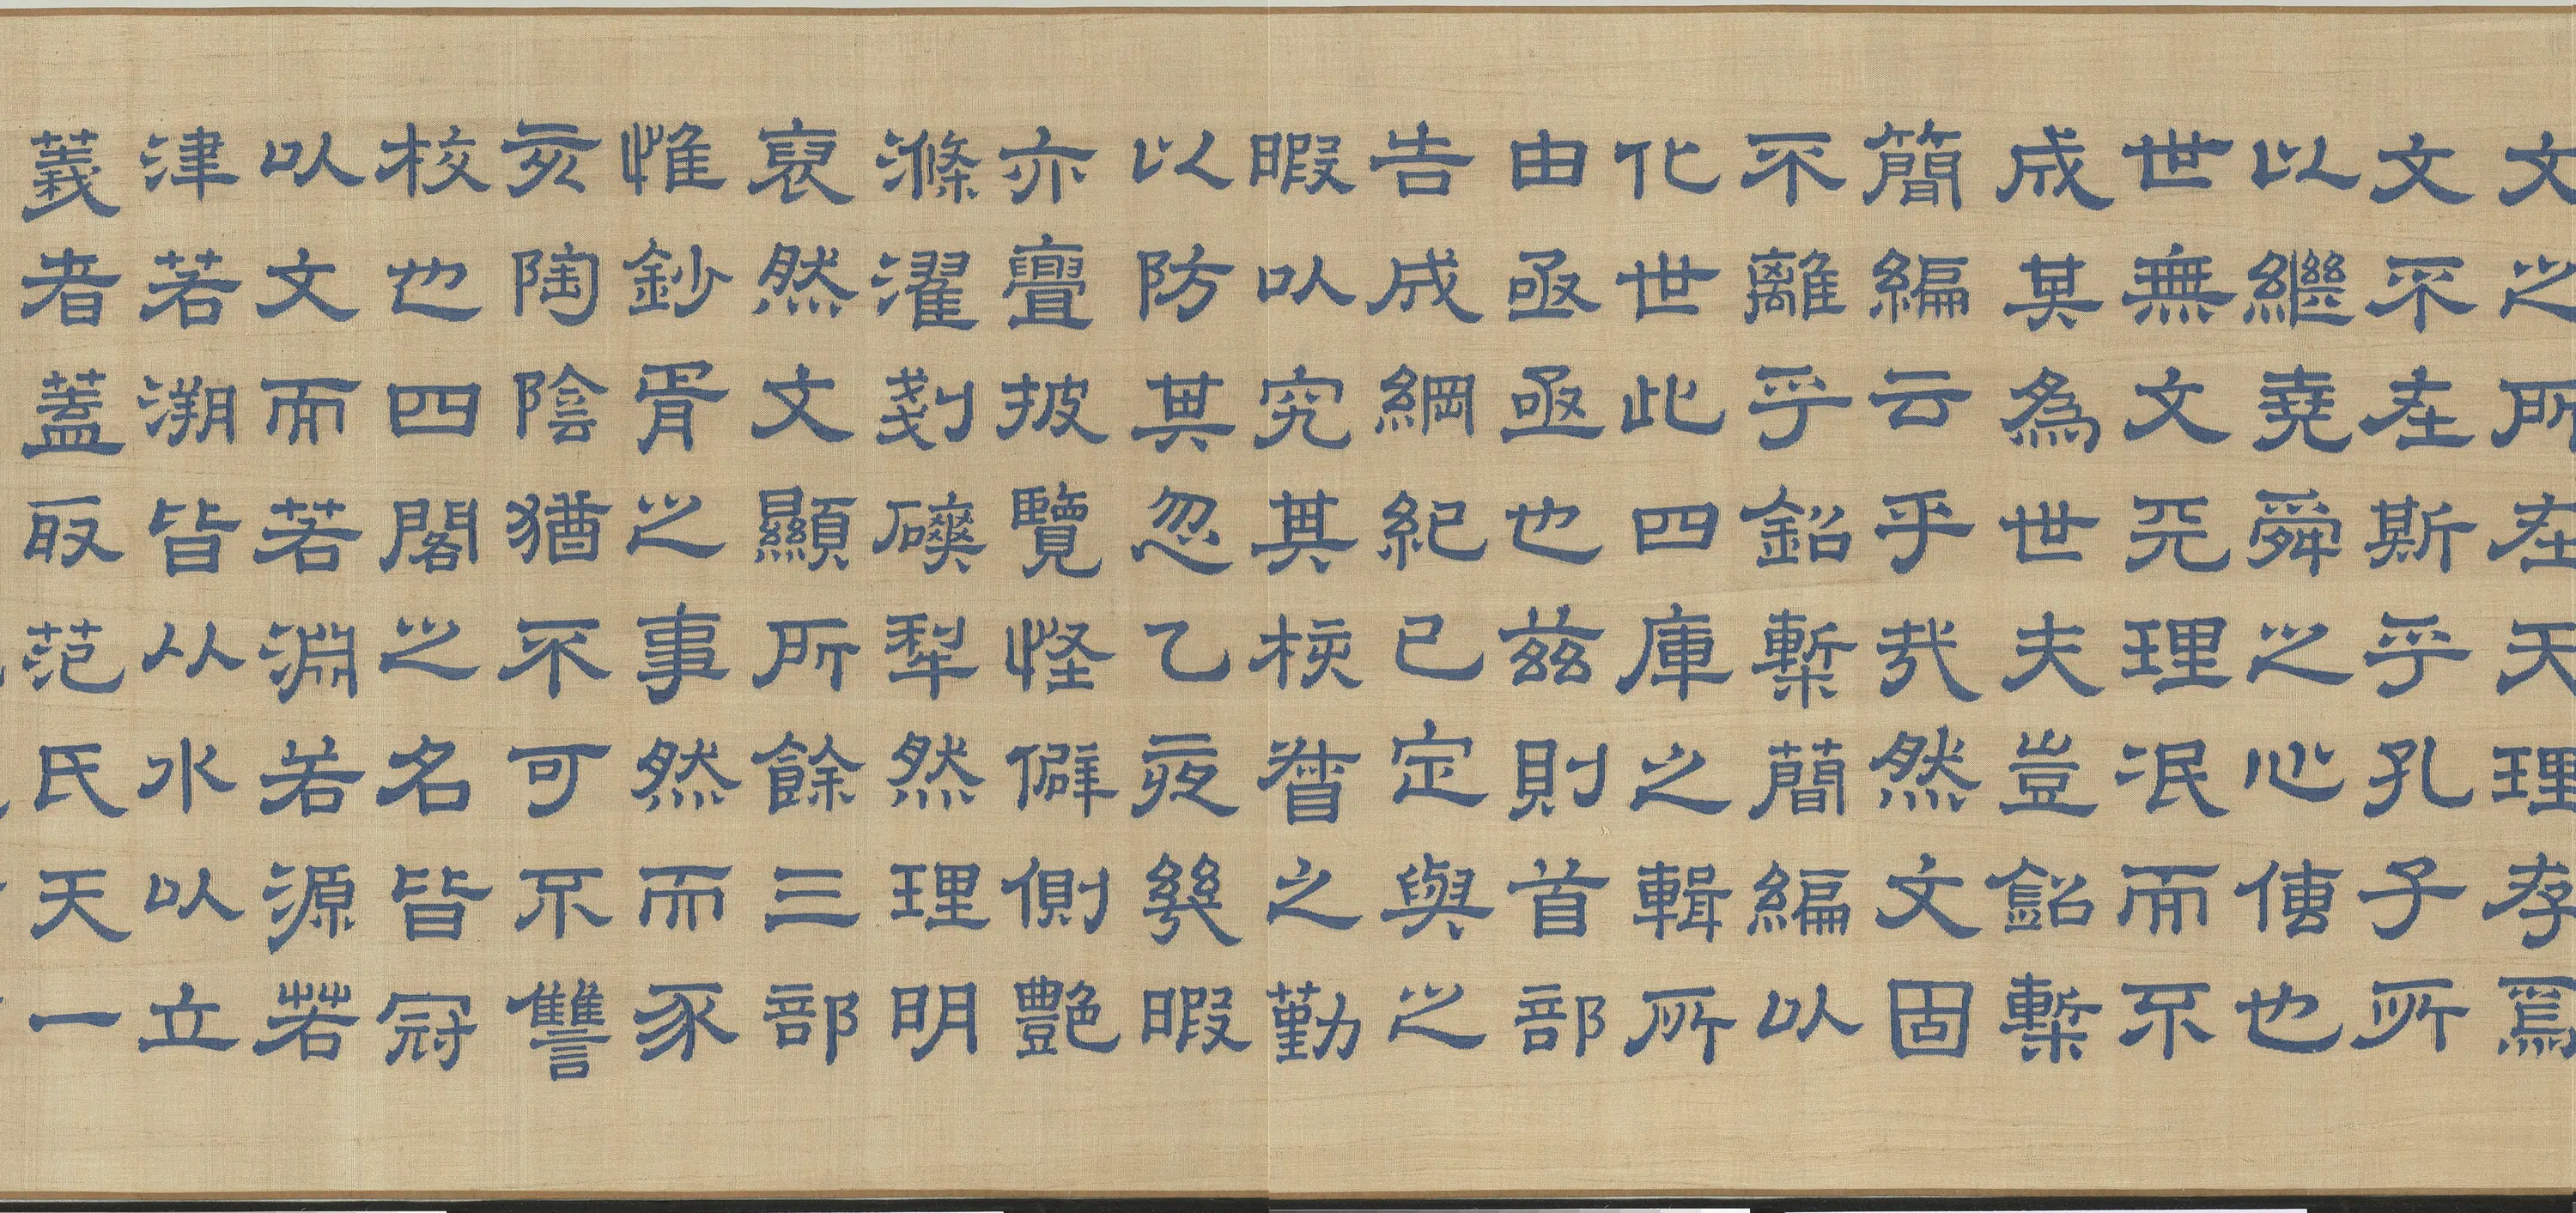 文之所在天理存焉
文不在斯乎孔子所
以繼堯舜之心傳也
世無文天理泯而不
成其為世夫豈鉛槧
簡編云乎哉然文固
不離乎鉛槧簡編以
化世此四庫之輯所
由亟亟也茲則首部
告成綱紀已定與之
暇以究其核督之勤
以防其忽乙夜幾暇
亦亹披覽怪僻側艷
滌濯剗磢犁然理明
裒然文顯所餘三部
惟鈔胥之事然而豕
亥陶陰猶不可不讐
校也四閣之名皆冠
以文而若淵若源若
津若溯皆從水以立
義者蓋取范氏天一